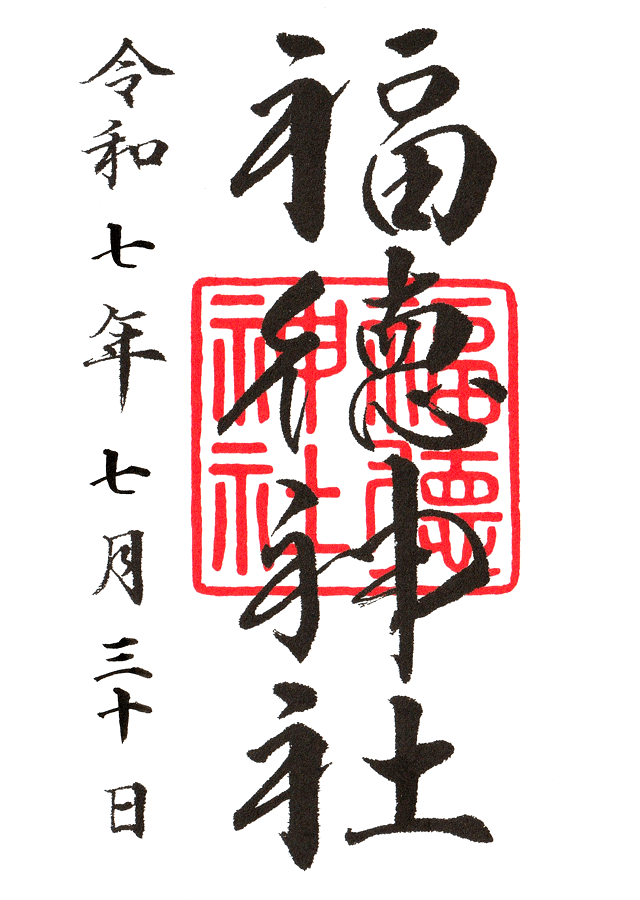 福徳神社
福徳
神社
令和七年七月三十日